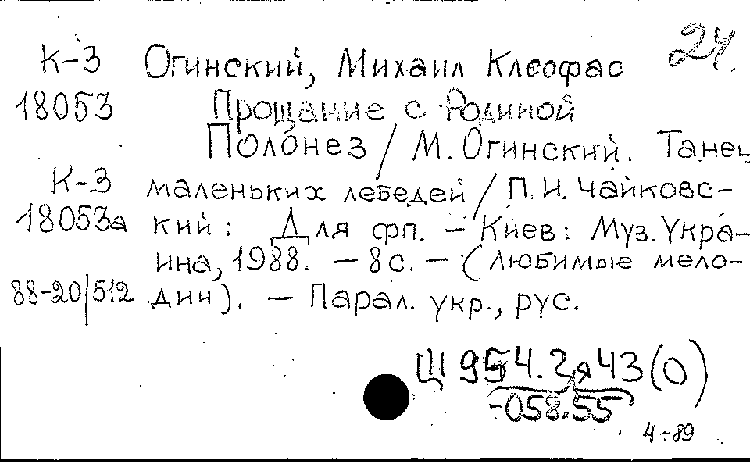 24.
К-3 Огинский, Михаил Клеофас
18053 Прощание с Родиной
Полонез / М. Огинский. Танец
К-3 маленьких лебедей / П. И. Чайковс-
18053а кий: Для фп. – Киев: Муз. Укра-
ина, 1988. – 8 с. – (Любимые мело-
88-20/512 дии). – Парал. укр., рус.
Щ 954.2я43(0)
-058.55
4-89